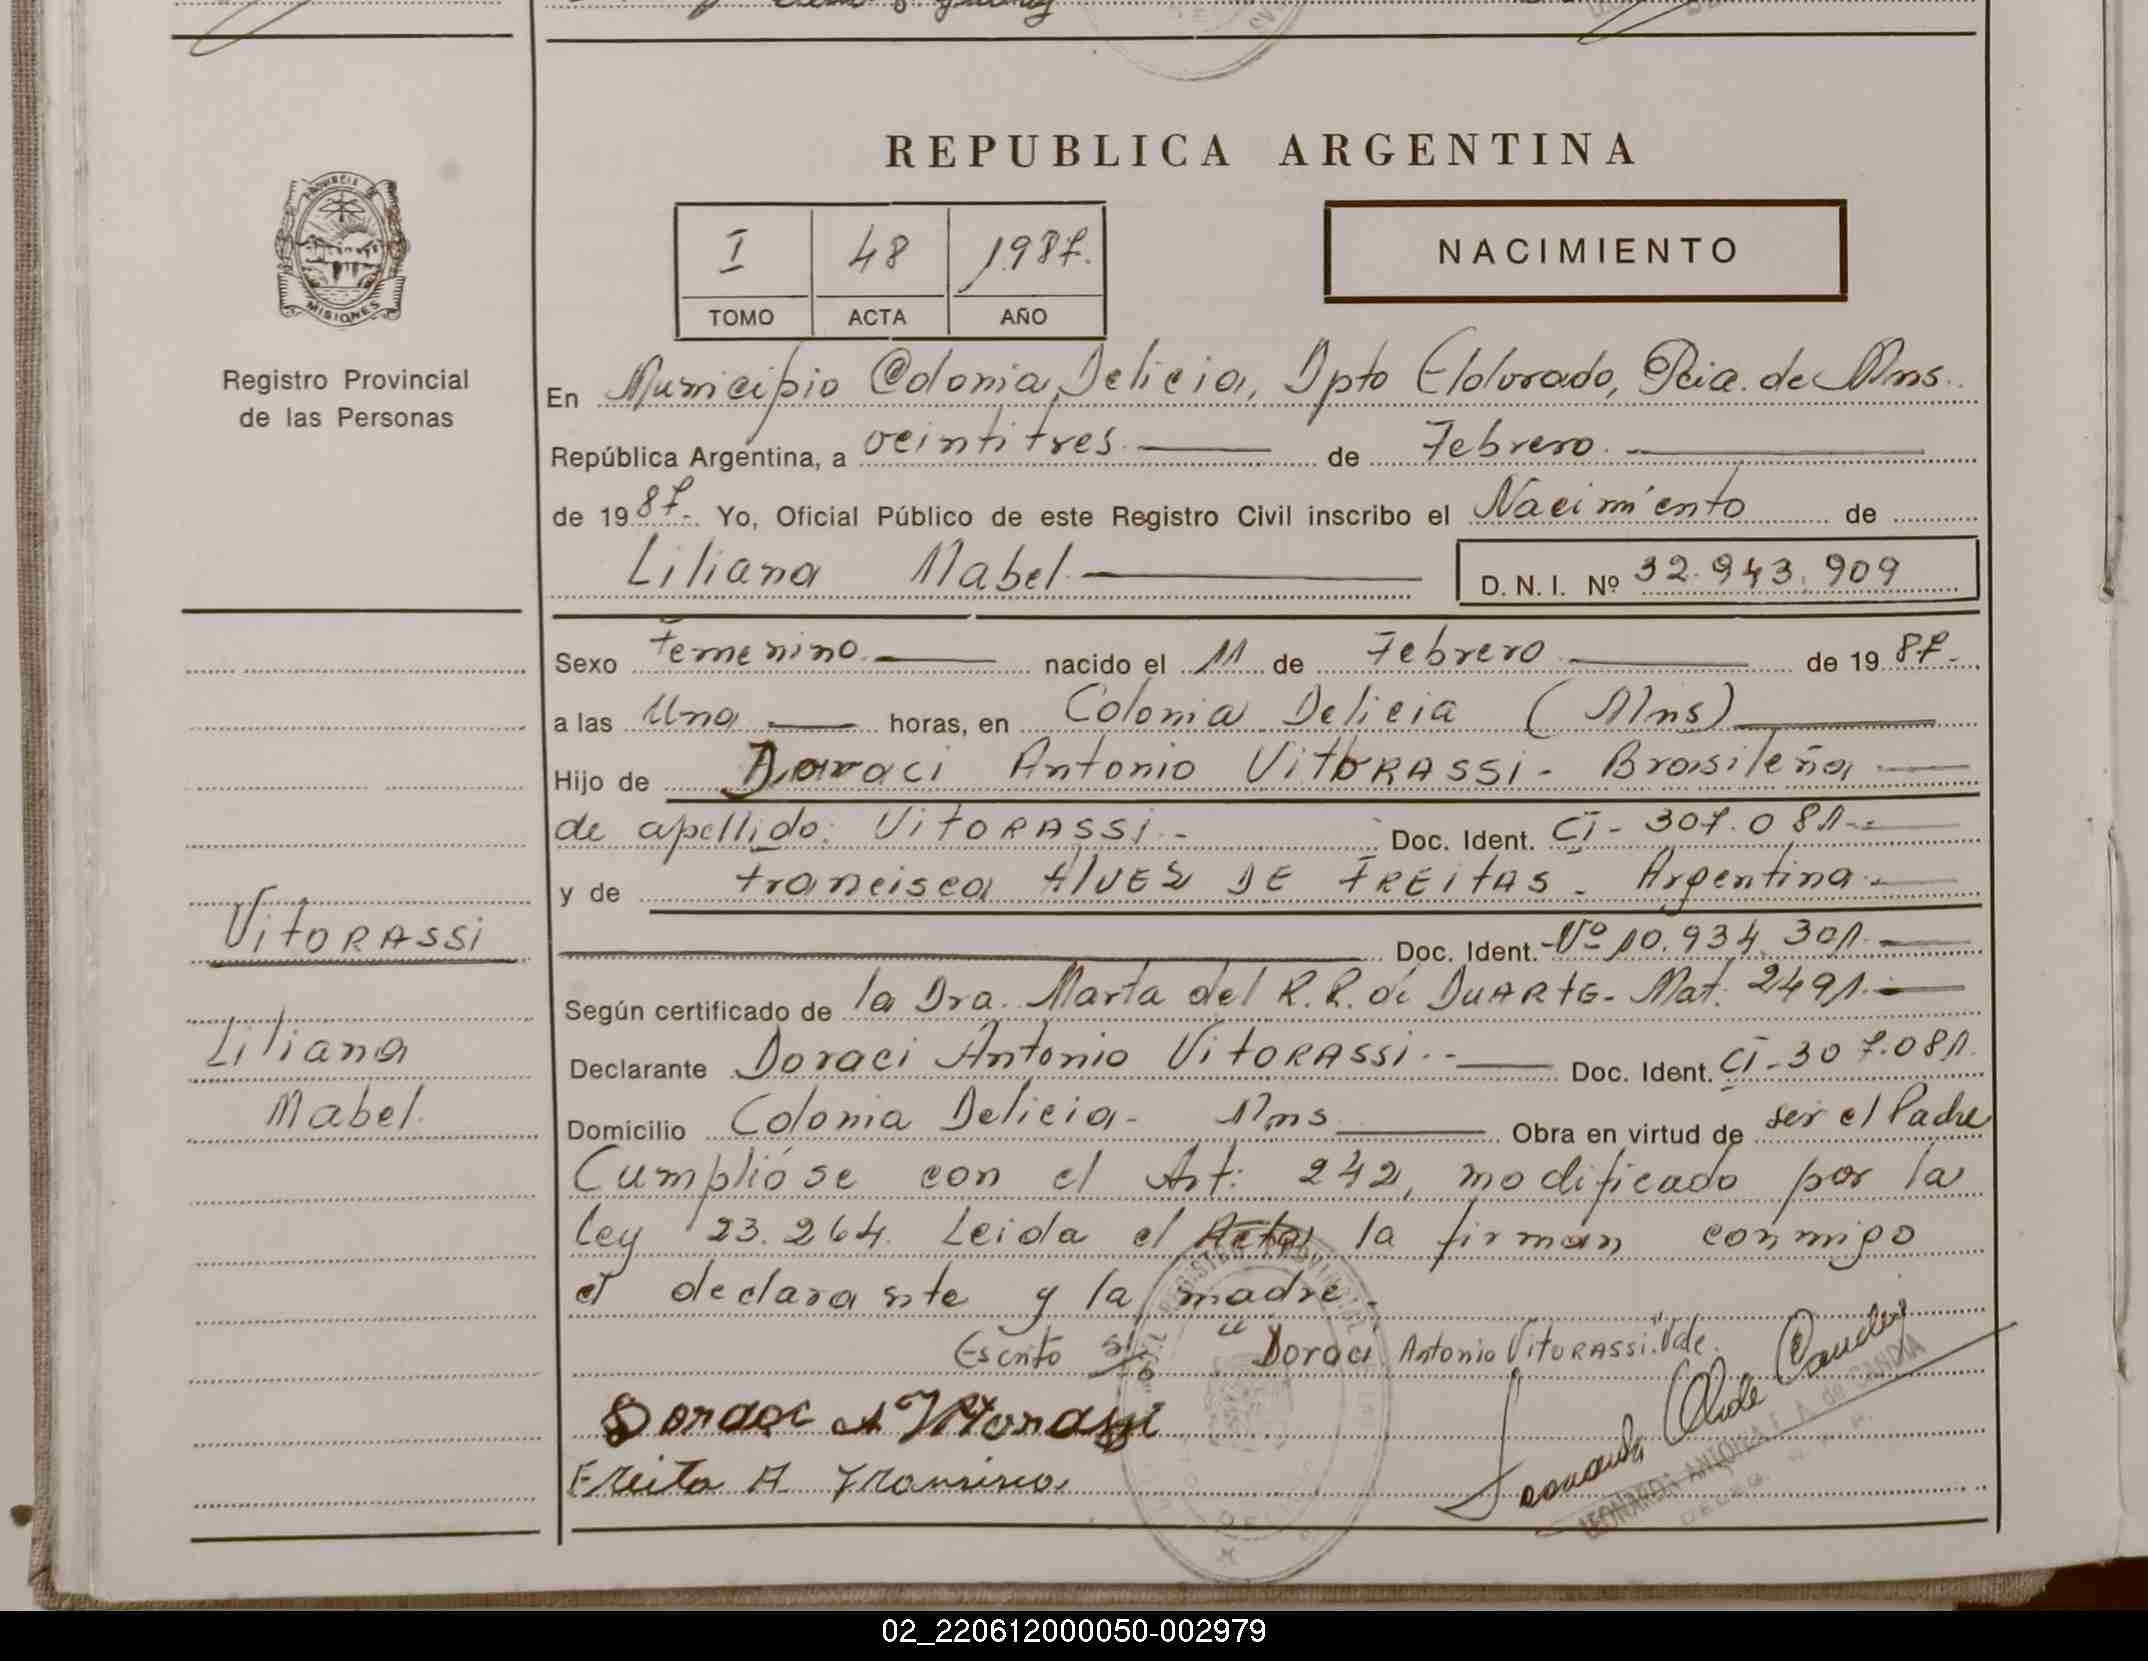 REPUBLICA ARGENTINA
I 48 1987.
TOMO ACTA AÑO
NACIMIENTO
MISIONES
Registro Provincial
de las Personas
En Municipio Colonia Delicia, Dpto Eldorado, Pcia. de Mns.
República Argentina, a veintitres de Febrero.
de 1987. Yo, Oficial Público de este Registro Civil inscribo el Nacimiento de
Liliana Mabel D. N. I. Nº 32.943.909
Sexo Femenino nacido el 11 de Febrero de 1987.
a las Una horas, en Colonia Delicia (Mns)
Hijo de Doraci Antonio VitORASSi - Brasileña
de apellido: VitORASSi - Doc. Ident. CI - 307.081.-
y de Francisca AlvES DE FREitAS - Argentina.-
Doc. Ident. Nº 10.934.301.
Según certificado de la Dra. Marta del R.R. de DuARtE - Mat. 2491.-
Declarante Doraci Antonio VitORASSi.- Doc. Ident. CI - 307.081.
Domicilio Colonia Delicia - Mns Obra en virtud de ser el Padre
Cumplióse con el Art: 242, modificado por la
ley 23.264. Leida el Acta, la firman conmigo
el declarante y la madre.
Escrito s/ "Doraci Antonio VitORASSi" Vale.
Doraci A Vitorassi
Freita A Francisca
VitORASSi
Liliana
Mabel.
02_220612000050-002979